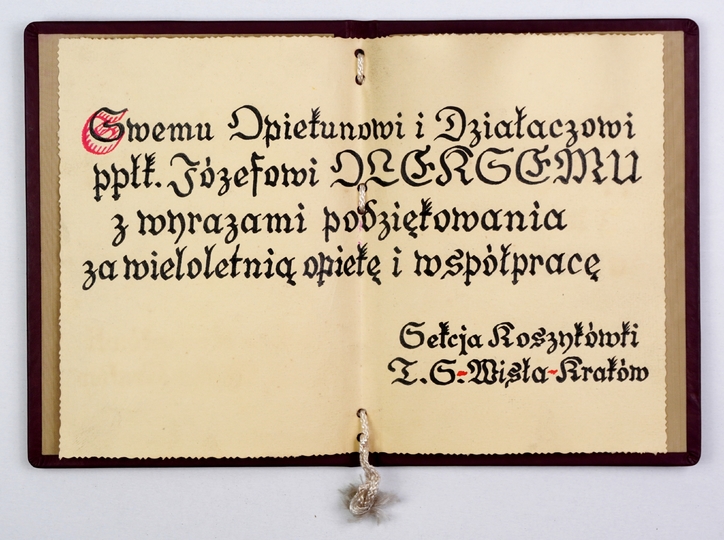 Swemu Opiekunowi i Działaczowi
ppłk. Józefowi OLEKSEMU
z wyrazami podziękowania
za wieloletnią opiekę i współpracę
Sekcja Koszykówki
T.S-Wisła-Kraków